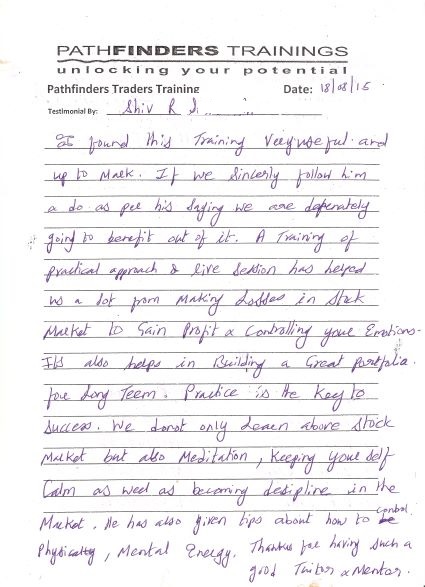 PATHFINDERS TRAININGS
unlocking your potential
Pathfinders Traders Training Date: 18/08/15
Testimonial By: Shiv R S.
I found this Training Very useful and
up to Mark. If we Sincerly follow him
a do as per his Saying we are defenately
going to benefit out of it. A Training of
practical approach & live Session has helped
us a lot from Making Losses in Stock
Market to Gain Profit & Controlling your Emotions.
It's also helps in Building a Great Portfolio
for Long Term. Practice is the Key to
Success. We donot only Learn above Stock
Market but also Meditation, Keeping your self
Calm as well as becoming desipline in the
Market. He has also given tips about how to control
Physically, Mental Energy. Thanks for having such a
good Tuitor & Mentor.